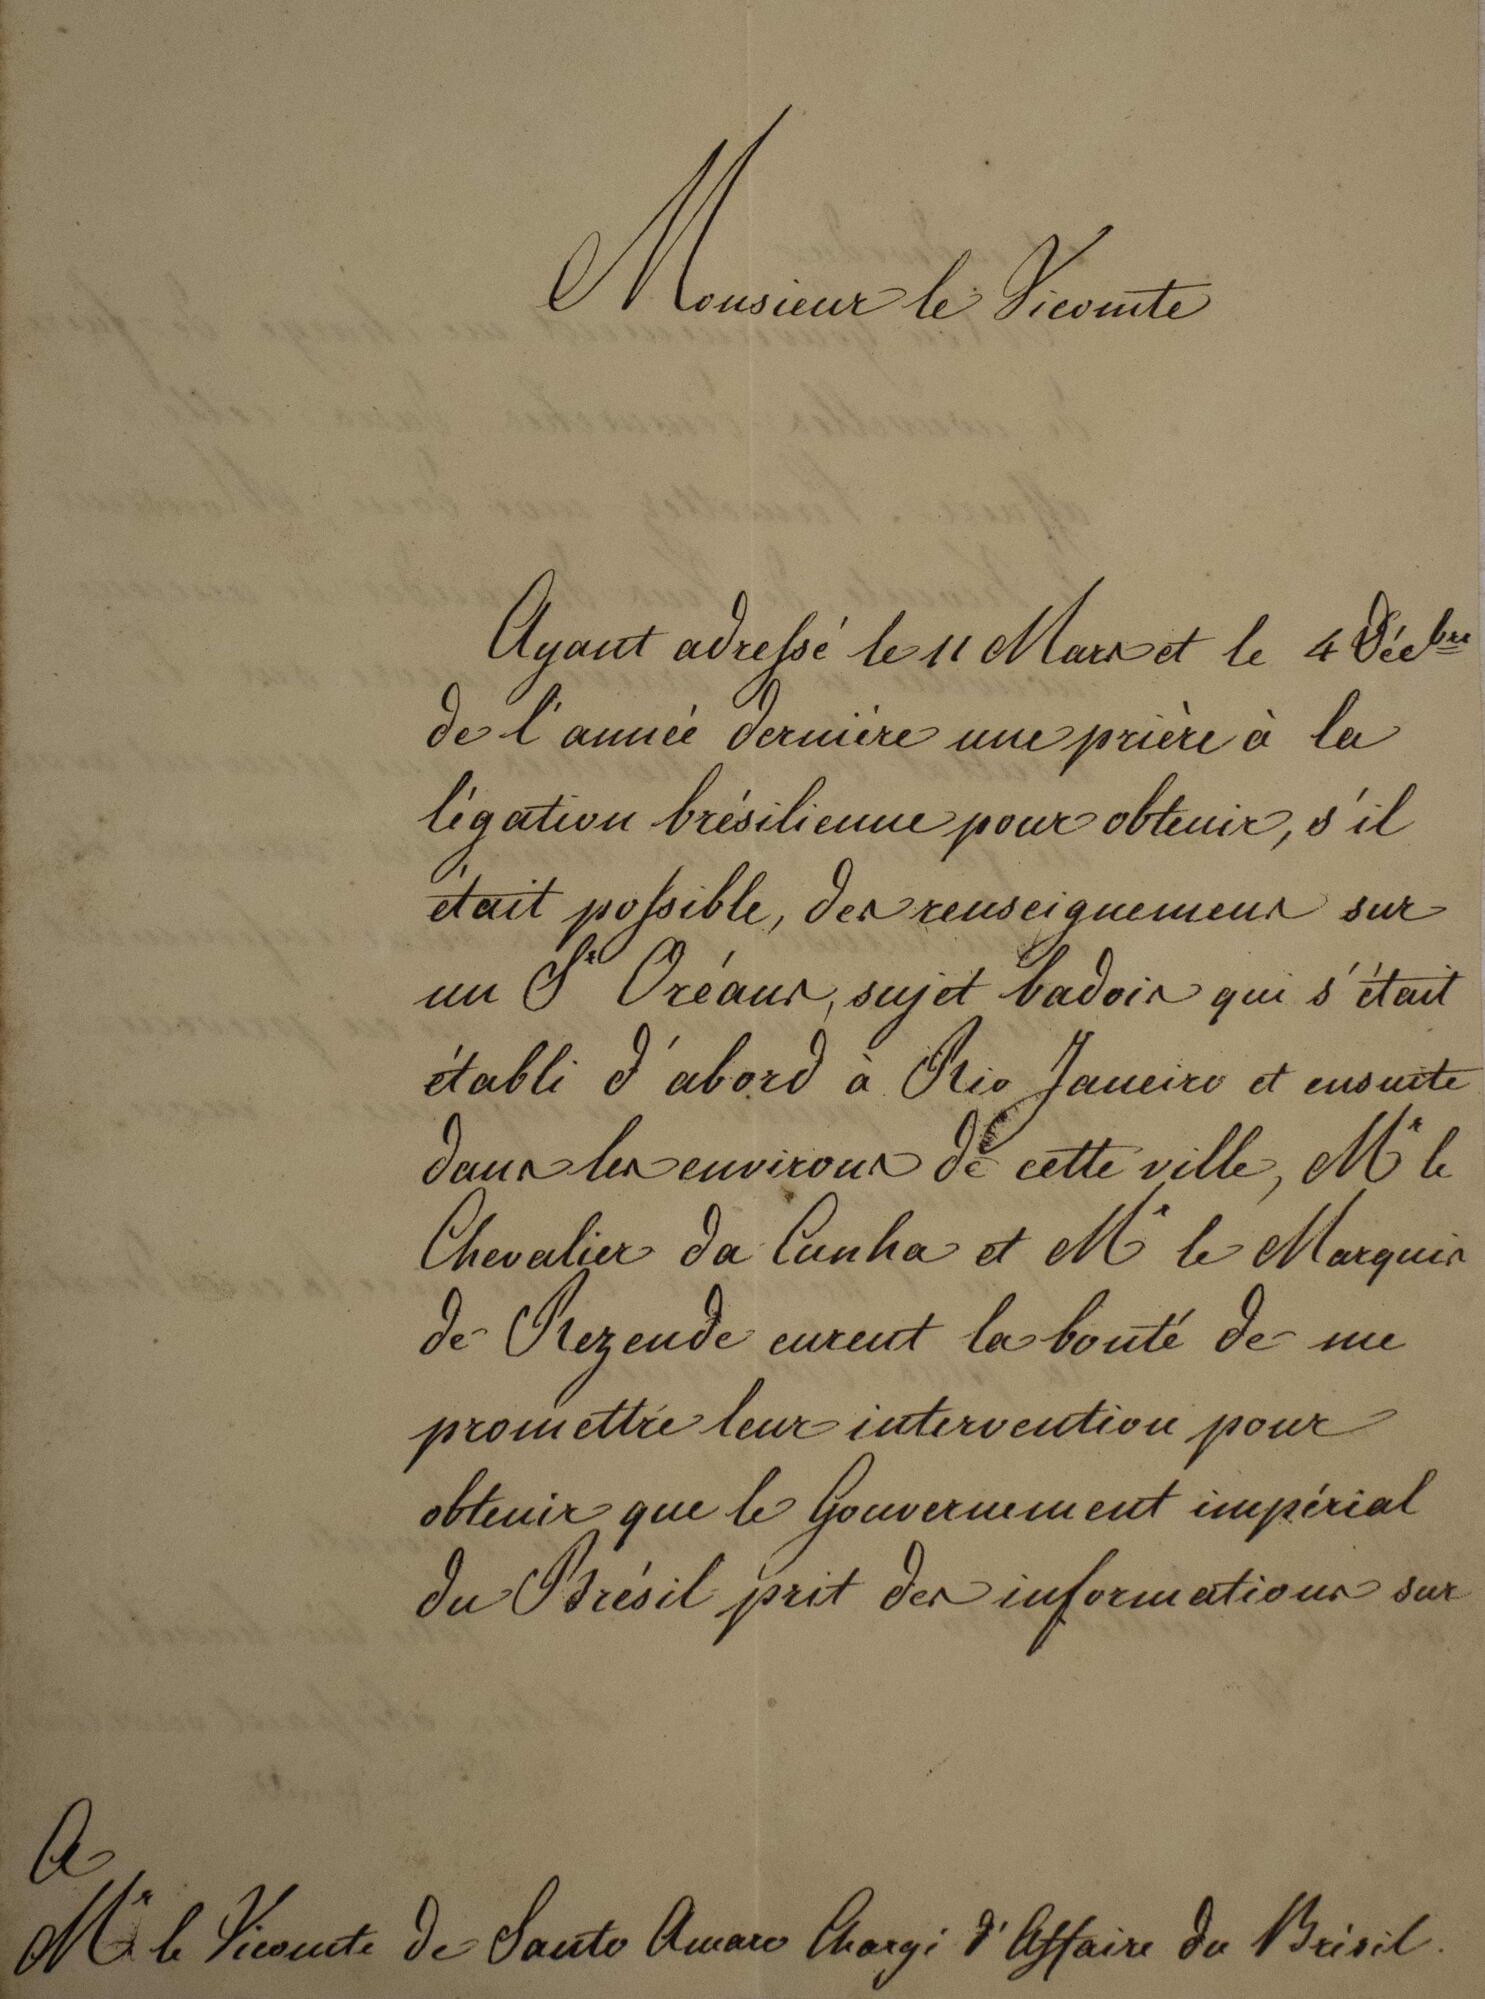 Monsieur le Vicomte
Ayant adressé le 11 Mars et le 4 Décbre
de l'année dernière une prière à la
légation brésilienne pour obtenir, s'il
était possible, des renseignemens sur
un Sr Oréans, sujet badois qui s'était
établi d'abord à Rio Janeiro et ensuite
dans les environs de cette ville, Mr le
Chevalier da Cunha et Mr le Marquis
de Rezende eurent la bonté de me
promettre leur intervention pour
obtenir que le Gouvernement impérial
du Brésil prit des informations sur
A
Mr le Vicomte de Santo Amaro Chargé d'Affaire du Brésil.